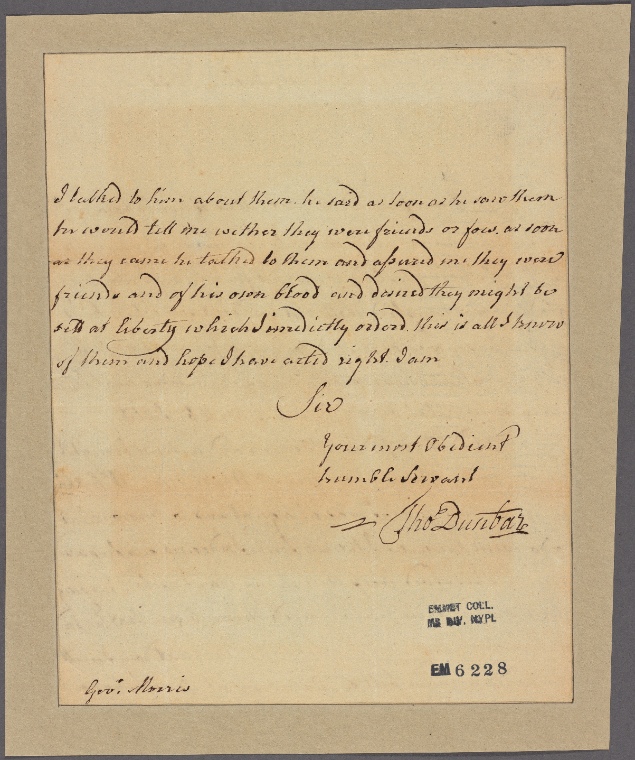 I talked to him about them. he said as soon as he saw them
he would tell me wether they were friends or foes. as soon
as they came he talked to them and assured me they were
friends and of his own blood and desired they might be
sett at liberty which I imedictly orderd. this is all I know
of them and hope I have acted right. I am
Sir
Your most Obedient
humble Servant
Tho.s Dunbar
EMMET COLL.
MS DIV. NYPL
EM 6228
Gov.r Morris